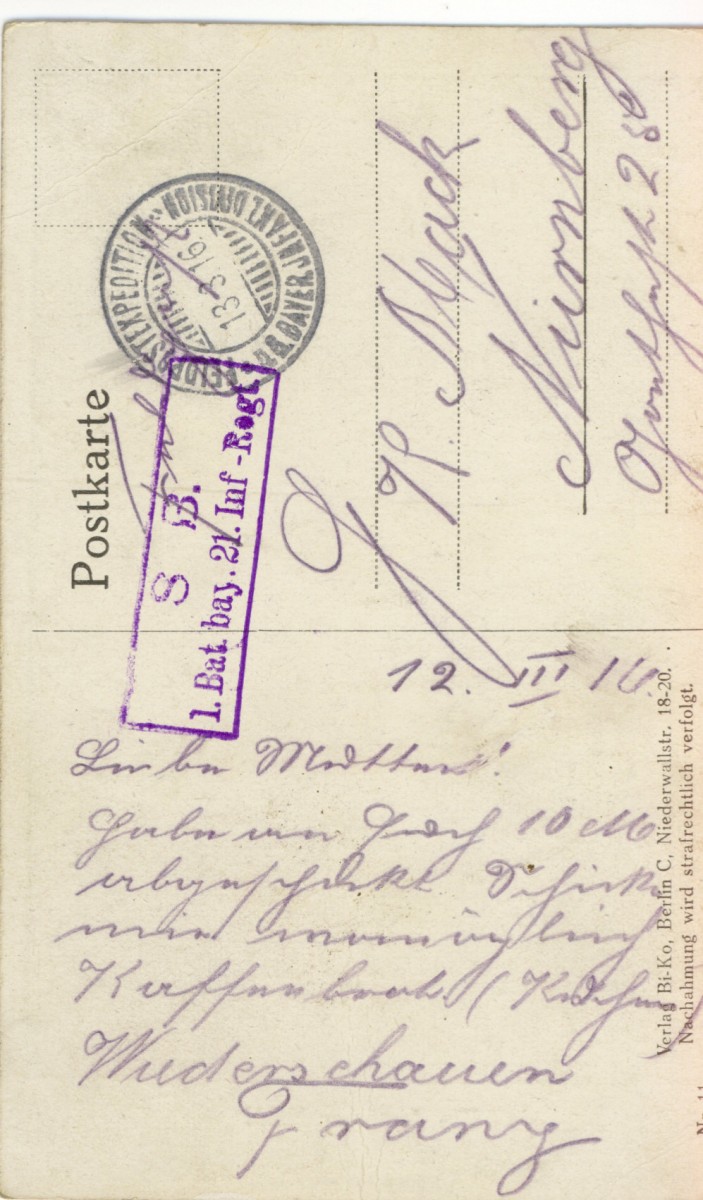 Postkarte
FELDPOSTEXPEDITION
BAYER. INFANT. DIVISION
13.3.16
S B.
1. Bat. bay. 21. Inf-Regt.
K. Mack
Nürnberg
12. III 16.
Liebe Mutter!
Habe an Euch 10 M
abgeschickt Schicke
mir womöglich
Kaffeebrot. (Kuchen)
Wiederschauen
Franz
Verlag Bi-Ko, Berlin C, Niederwallstr. 18-20.
Nachahmung wird strafrechtlich verfolgt.